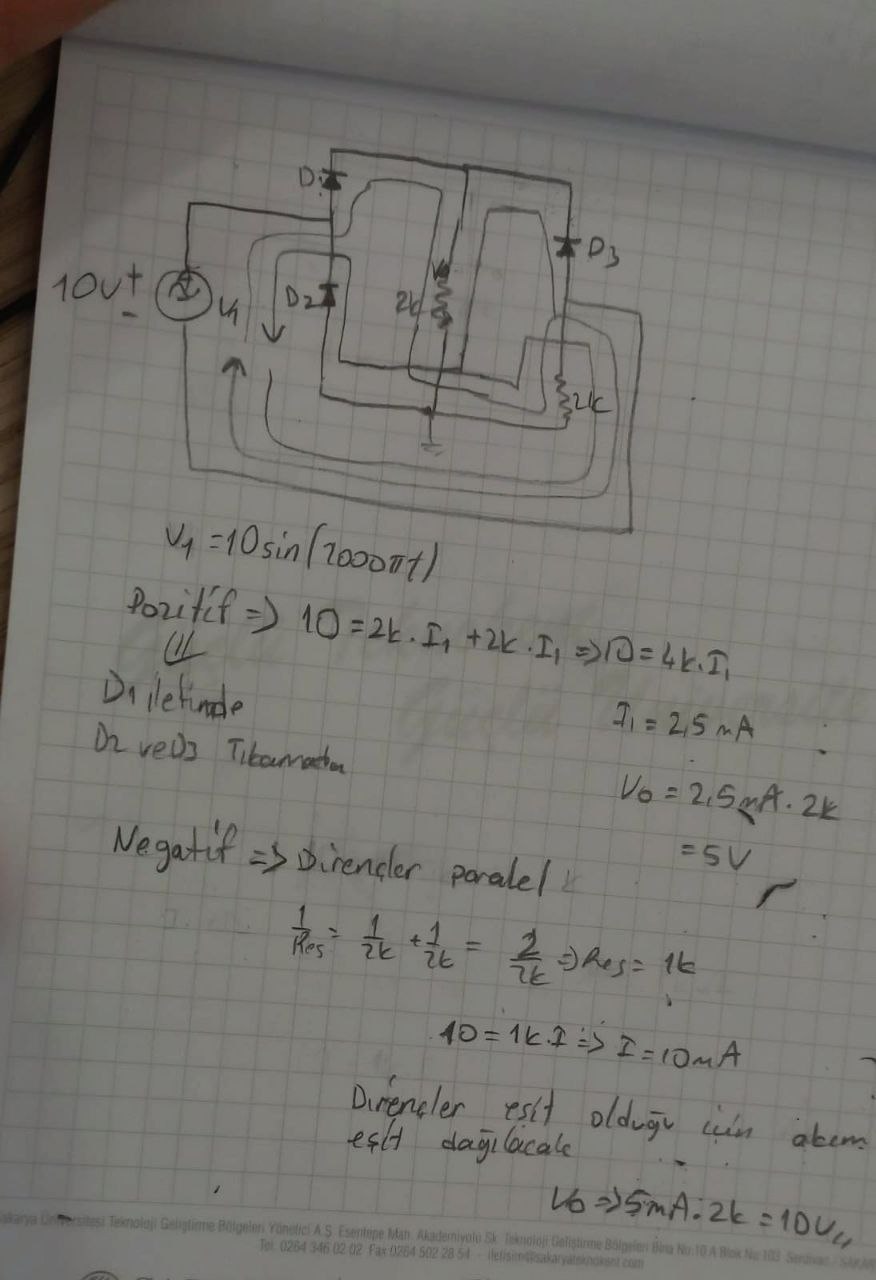 D1
D3
10V +
-
V1
D2
2k
2k
V1 = 10 sin(2000πt)
Pozitif => 10 = 2k . I1 + 2k . I1 => 10 = 4k . I1
D1 iletimde
I1 = 2,5 mA
D2 ve D3 Tıkamada
V0 = 2,5 mA . 2k
= 5V
Negatif => Dirençler paralel
1/Reş = 1/2k + 1/2k = 2/2k => Reş = 1k
10 = 1k . I => I = 10mA
Dirençler eşit olduğu için akım
eşit dağılacak
V0 => 5mA . 2k = 10V
Sakarya Üniversitesi Teknoloji Geliştirme Bölgeleri Yönetici A.Ş. Esentepe Mah. Akademiyolu Sk. Teknoloji Geliştirme Bölgeleri Bina No:10 A Blok No:103 Serdivan / SAKAR
Tel: 0264 346 02 02 Fax 0264 502 28 54 - iletisim@sakaryateknokent.com